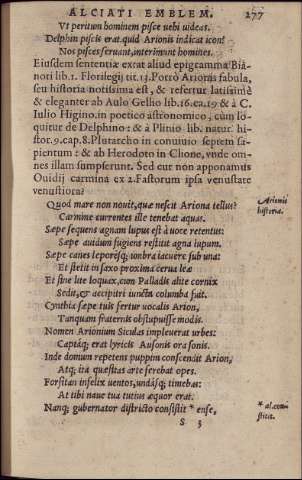 ALCIATI EMBLEM. 277
Vt peritum hominem pisce uehi uideas.
Delphin piscis erat quid Arionis indicat icon?
Nos pisces seruant, interimunt homines.
Eiusdem sententiæ extat aliud epigramma Bia-
nori lib. 1. Florilegij tit. 13. Porrò Arionis fabula,
seu historia notissima est, & refertur latissimè
& eleganter ab Aulo Gellio lib. 16. ca. 19 & à C.
Iulio Higino. in poetico astronomico, cùm lo-
quitur de Delphino: & à Plinio lib. natur. hi-
stor. 9. cap. 8. Plutarcho in conuiuio septem sa-
pientum: & ab Herodoto in Clione, vnde om-
nes illam sumpserunt. Sed cur non apponamus
Ouidij carmina ex 2. Fastorum ipsa venustate
venustiora?
Quod mare non nouit, quæ nescit Ariona tellus? Arionis
Carmine currentes ille tenebat aquas. historia.
Sæpe sequens agnam lupus est à uoce retentus:
Sæpe auidum fugiens restitit agna lupum.
Sæpe canes leporesq; umbra iacuere sub una:
Et stetit in saxo proxima cerua leæ
Et sine lite loquax, cum Palladis alite cornix
Sedit, & accipitri iuncta columba fuit.
Cynthia sæpe tuis fertur uocalis Arion,
Tanquam fraternis obstupuisse modis.
Nomen Arionium Siculas impleuerat urbes:
Captaq; erat lyricis Ausonis ora sonis.
Inde domum repetens puppim conscendit Arion,
Atq; ita quæsitas arte ferebat opes.
Forsitan infelix uentos, undasq; timebas:
At tibi naue tua tutius æquor erat.
Nanq; gubernator districto consistit * ense, * al. con-
stitit.
S 3